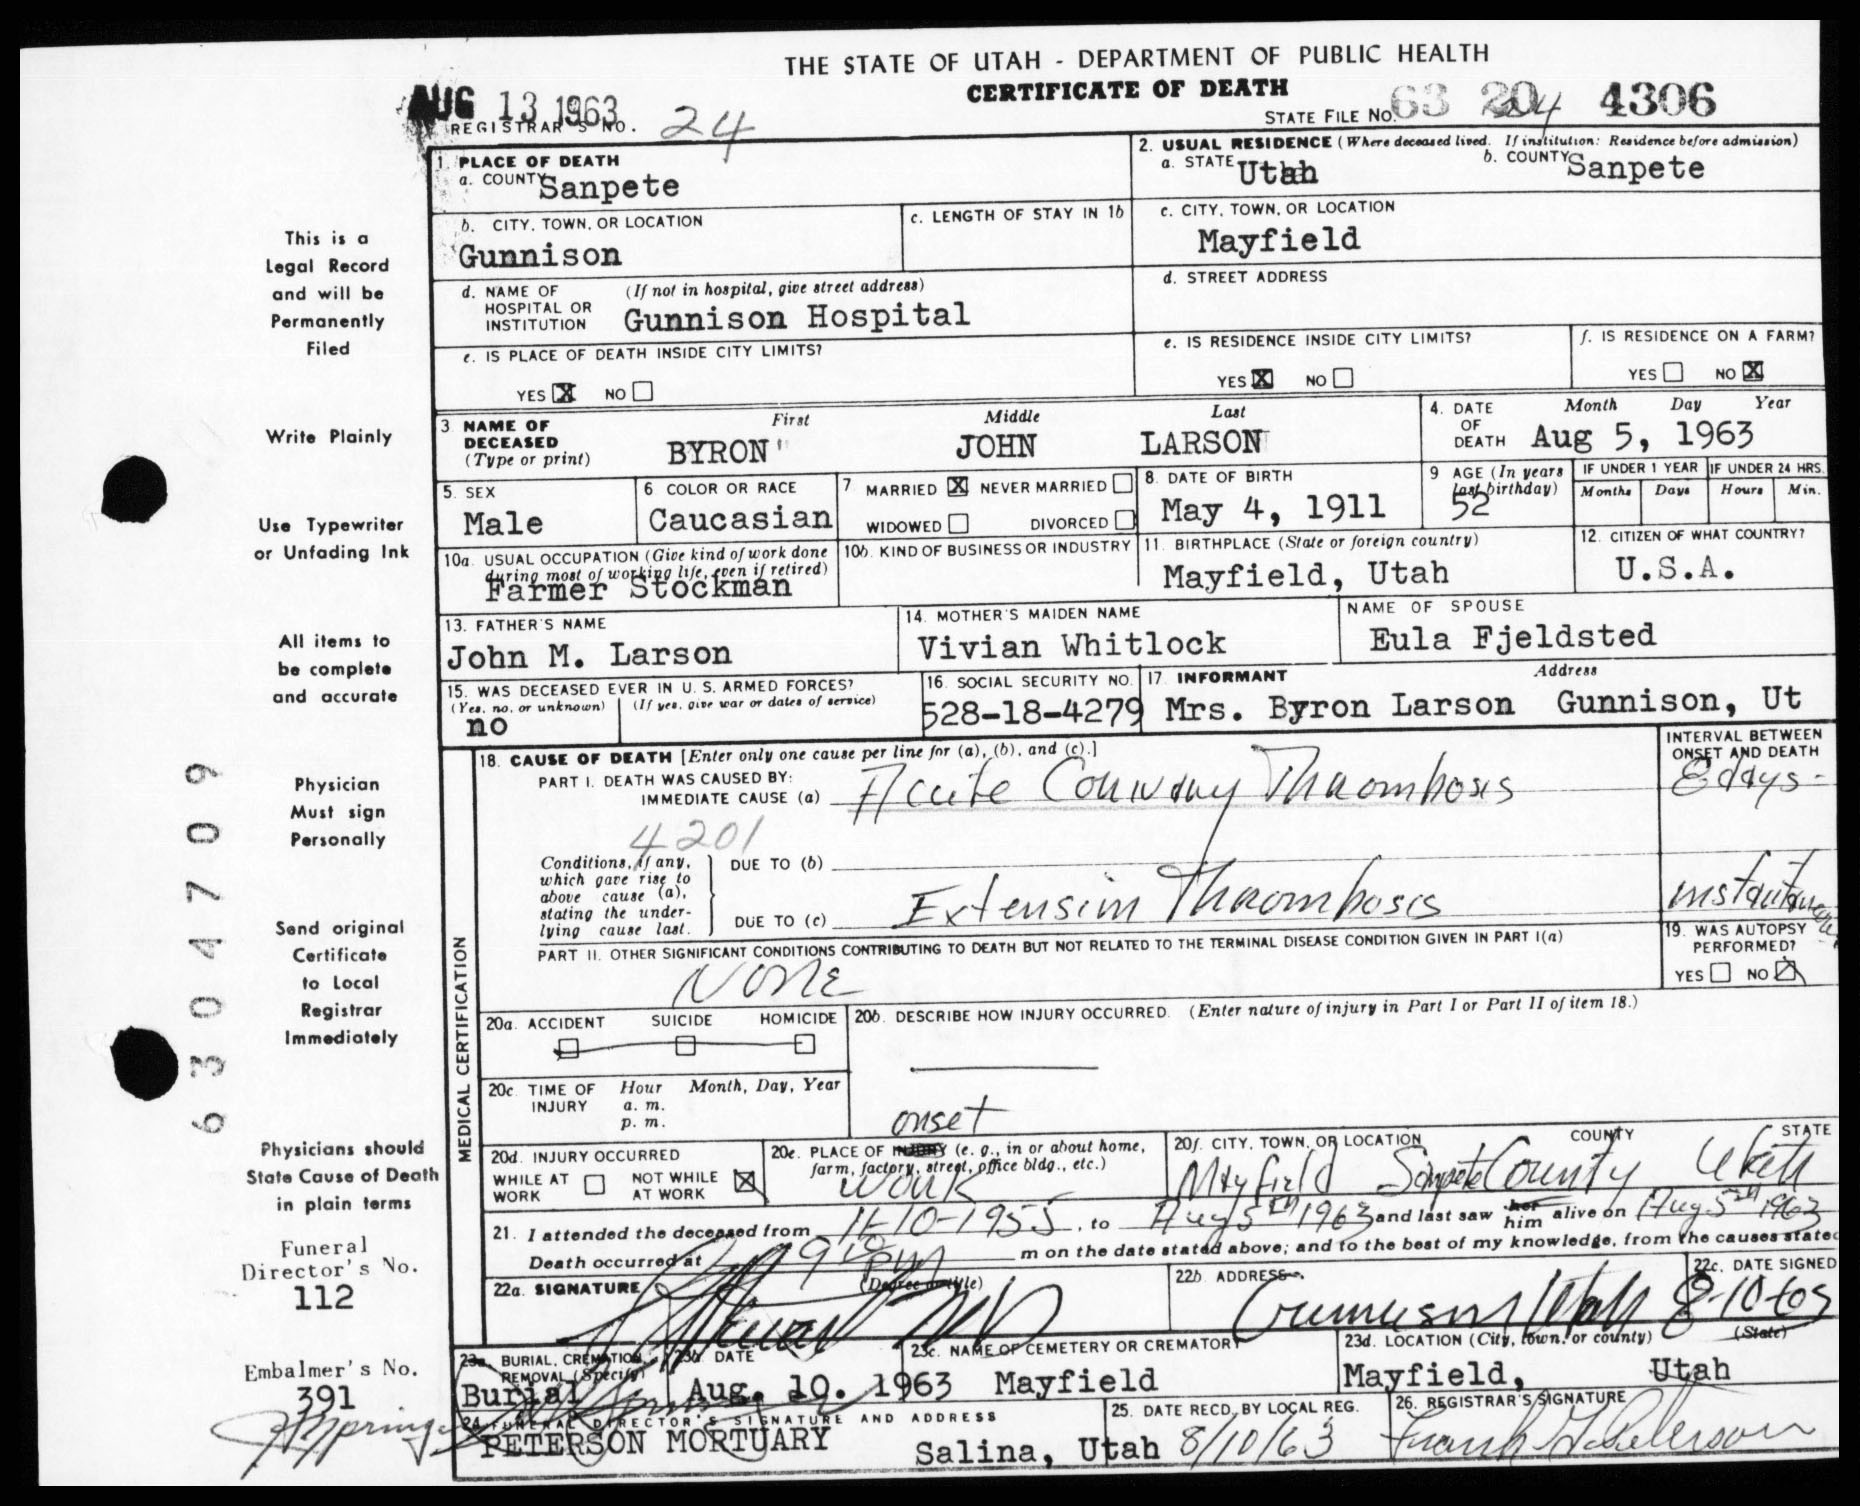 THE STATE OF UTAH - DEPARTMENT OF PUBLIC HEALTH
CERTIFICATE OF DEATH
AUG 13 1963
REGISTRAR'S NO. 24
STATE FILE NO. 63 20 4 4306
1. PLACE OF DEATH
a. COUNTY Sanpete
2. USUAL RESIDENCE (Where deceased lived. If institution: Residence before admission)
a. STATE Utah b. COUNTY Sanpete
b. CITY, TOWN, OR LOCATION
Gunnison
c. LENGTH OF STAY IN 1b
c. CITY, TOWN, OR LOCATION
Mayfield
d. NAME OF HOSPITAL OR INSTITUTION (If not in hospital, give street address)
Gunnison Hospital
d. STREET ADDRESS
e. IS PLACE OF DEATH INSIDE CITY LIMITS?
YES X NO
e. IS RESIDENCE INSIDE CITY LIMITS?
YES X NO
f. IS RESIDENCE ON A FARM?
YES NO X
3 NAME OF DECEASED (Type or print)
First Middle Last
BYRON JOHN LARSON
4. DATE OF DEATH Month Day Year
Aug 5, 1963
5. SEX
Male
6 COLOR OR RACE
Caucasian
7 MARRIED X NEVER MARRIED
WIDOWED DIVORCED
8. DATE OF BIRTH
May 4, 1911
9 AGE (In years last birthday)
52
IF UNDER 1 YEAR IF UNDER 24 HRS.
Months Days Hours Min.
10a. USUAL OCCUPATION (Give kind of work done during most of working life, even if retired)
Farmer Stockman
10b. KIND OF BUSINESS OR INDUSTRY
11. BIRTHPLACE (State or foreign country)
Mayfield, Utah
12. CITIZEN OF WHAT COUNTRY?
U.S.A.
13. FATHER'S NAME
John M. Larson
14. MOTHER'S MAIDEN NAME
Vivian Whitlock
NAME OF SPOUSE
Eula Fjeldsted
15. WAS DECEASED EVER IN U. S. ARMED FORCES?
(Yes, no, or unknown) (If yes, give war or dates of service)
no
16. SOCIAL SECURITY NO.
528-18-4279
17. INFORMANT Address
Mrs. Byron Larson Gunnison, Ut
18. CAUSE OF DEATH [Enter only one cause per line for (a), (b), and (c).]
INTERVAL BETWEEN ONSET AND DEATH
PART I. DEATH WAS CAUSED BY:
IMMEDIATE CAUSE (a) Acute Coronary Thrombosis 8 days -
4201
Conditions, if any, which gave rise to above cause (a), stating the underlying cause last.
DUE TO (b)
DUE TO (c) Extension Thrombosis
PART II. OTHER SIGNIFICANT CONDITIONS CONTRIBUTING TO DEATH BUT NOT RELATED TO THE TERMINAL DISEASE CONDITION GIVEN IN PART I(a)
None
19. WAS AUTOPSY PERFORMED?
YES NO X
MEDICAL CERTIFICATION
20a. ACCIDENT SUICIDE HOMICIDE
20b. DESCRIBE HOW INJURY OCCURRED. (Enter nature of injury in Part I or Part II of item 18.)
20c. TIME OF INJURY Hour Month, Day, Year
a. m.
p. m.
onset
20d. INJURY OCCURRED
WHILE AT WORK NOT WHILE AT WORK X
20e. PLACE OF INJURY (e. g., in or about home, farm, factory, street, office bldg., etc.)
work
20f. CITY, TOWN, OR LOCATION COUNTY STATE
Mayfield Sanpete County Utah
21. I attended the deceased from 11-10-1955, to Aug 5th 1963 and last saw her him alive on Aug 5th 1963
Death occurred at 9 10 pm m on the date stated above; and to the best of my knowledge, from the causes stated
22a. SIGNATURE (Degree or title)
MD
22b. ADDRESS
Gunnison Utah
22c. DATE SIGNED
8-10-63
23a. BURIAL, CREMATION, REMOVAL (Specify)
Burial
23b. DATE
Aug. 10. 1963
23c. NAME OF CEMETERY OR CREMATORY
Mayfield
23d. LOCATION (City, town, or county) (State)
Mayfield, Utah
24. FUNERAL DIRECTOR'S SIGNATURE AND ADDRESS
PETERSON MORTUARY Salina, Utah
25. DATE RECD. BY LOCAL REG.
8/10/63
26. REGISTRAR'S SIGNATURE
This is a
Legal Record
and will be
Permanently
Filed
Write Plainly
Use Typewriter
or Unfading Ink
All items to
be complete
and accurate
Physician
Must sign
Personally
Send original
Certificate
to Local
Registrar
Immediately
Physicians should
State Cause of Death
in plain terms
Funeral
Director's No.
112
Embalmer's No.
391
6304709